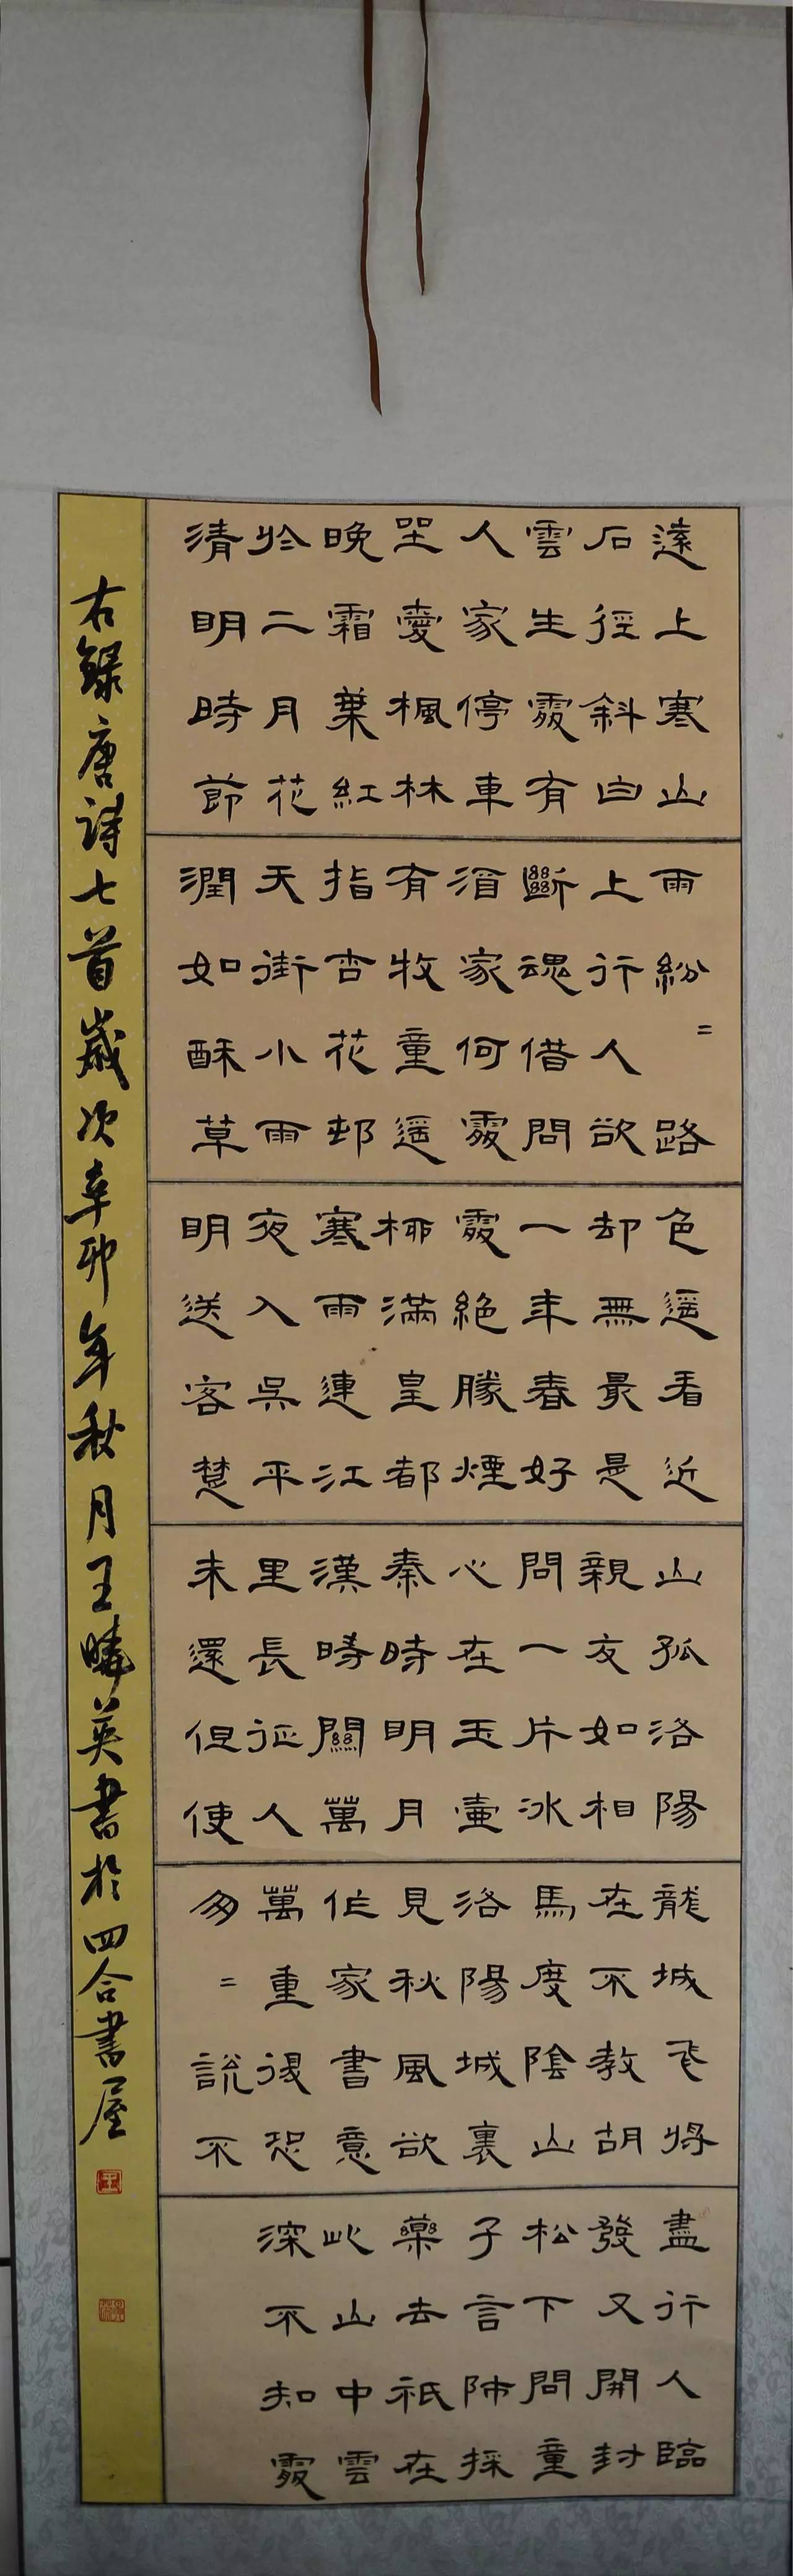 遠上寒山
石徑斜白
雲生處有
人家停車
坐愛楓林
晚霜葉紅
於二月花
清明時節
雨紛=路
上行人欲
斷魂借問
酒家何處
有牧童遥
指杏花邨
天街小雨
潤如酥草
色遥看近
却無最是
一年春好
處絕勝煙
柳滿皇都
寒雨連江
夜入吳平
明送客楚
山孤洛陽
親友如相
問一片冰
心在玉壺
秦時明月
漢時關萬
里長征人
未還但使
龍城飛將
在不教胡
馬度陰山
洛陽城裏
見秋風欲
作家書意
萬重復恐
匆=說不
盡行人臨
發又開封
松下問童
子言師採
藥去祇在
此山中雲
深不知處
右錄唐詩七首歲次辛卯年秋月王曉英書於四合書屋
王